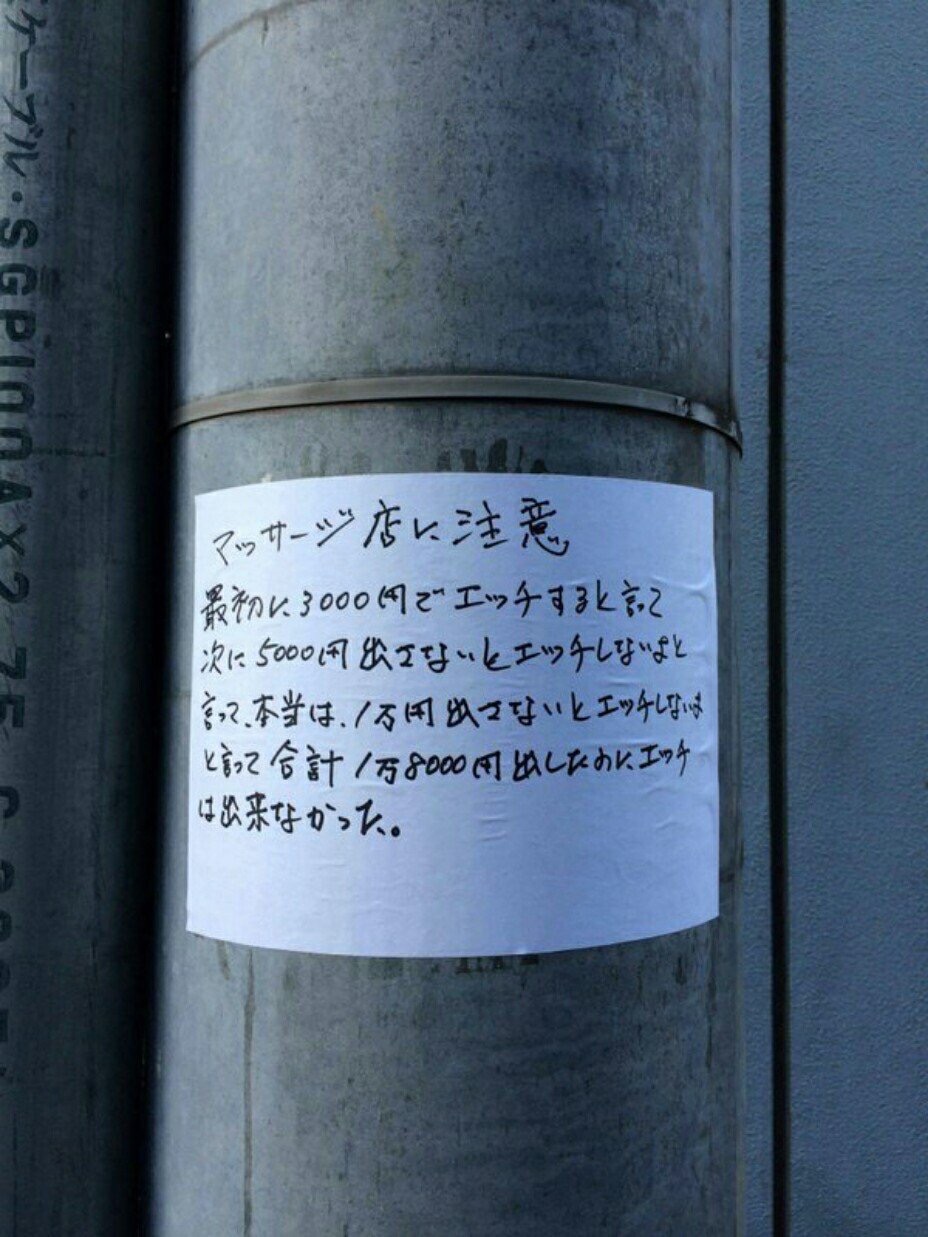 ケーブル・SGP100AX2.75
マッサージ店に注意
最初に3000円でエッチすると言って
次に5000円出さないとエッチしないよと
言って、本当は、1万円出さないとエッチしないよ
と言って合計1万8000円出したのにエッチ
は出来なかった。